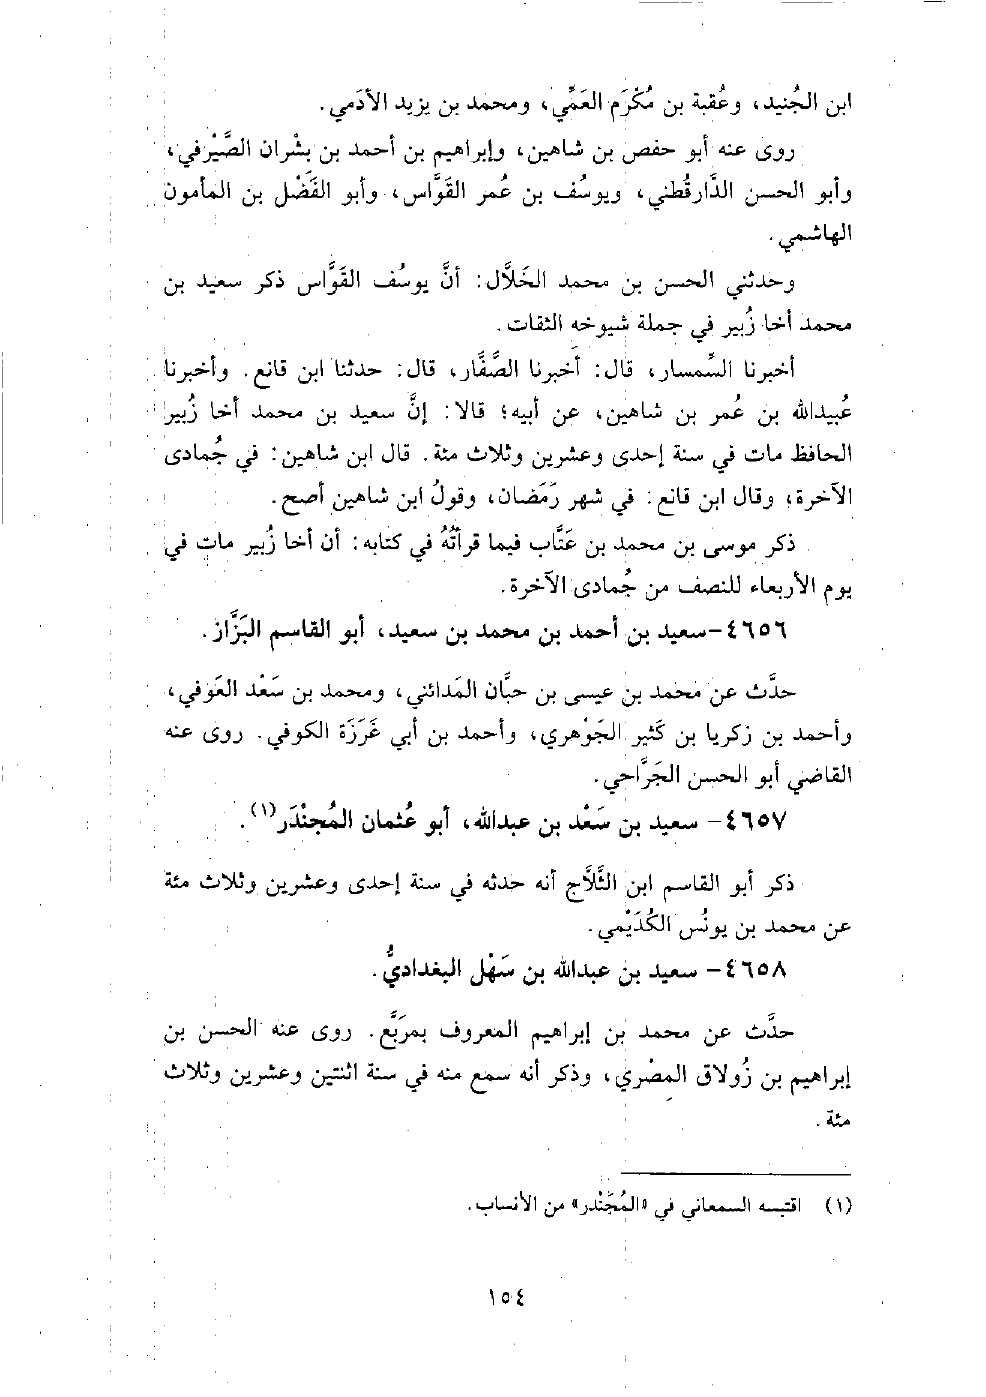 ابن الجُنيد، وعُقبة بن مُكْرَم العَمِّي، ومحمد بن يزيد الأدَمي.
روى عنه أبو حفص بن شاهين، وإبراهيم بن أحمد بن بِشْران الصَّيْرفي،
وأبو الحسن الدَّارقُطني، ويوسُف بن عُمر القَوَّاس، وأبو الفَضْل بن المأمون
الهاشمي.
وحدثني الحسن بن محمد الخَلَّال: أنَّ يوسُف القَوَّاس ذكر سعيد بن
محمد أخا زُبير في جملة شيوخه الثقات.
أخبرنا السِّمسار، قال: أخبرنا الصَّفَّار، قال: حدثنا ابن قانع. وأخبرنا
عُبيدالله بن عُمر بن شاهين، عن أبيه؛ قالا: إنَّ سعيد بن محمد أخا زُبير
الحافظ مات في سنة إحدى وعشرين وثلاث مئة. قال ابن شاهين: في جُمادى
الآخرة، وقال ابن قانع: في شهر رَمَضان، وقولُ ابن شاهين أصح.
ذكر موسى بن محمد بن عَتَّاب فيما قرأتُهُ في كتابه: أن أخا زُبير مات في
يوم الأربعاء للنصف من جُمادى الآخرة.
٤٦٥٦-سعيد بن أحمد بن محمد بن سعيد، أبو القاسم البَزَّاز.
حدَّث عن محمد بن عيسى بن حبَّان المَدائني، ومحمد بن سَعْد العَوفي،
وأحمد بن زكريا بن كَثير الجَوْهري، وأحمد بن أبي غَرَزَة الكوفي. روى عنه
القاضي أبو الحسن الجَرَّاحي.
٤٦٥٧- سعيد بن سَعْد بن عبدالله، أبو عُثمان المُجَنْدَر(١).
ذكر أبو القاسم ابن الثَّلَّاج أنه حدثه في سنة إحدى وعشرين وثلاث مئة
عن محمد بن يونُس الكُدَيْمي.
٤٦٥٨- سعيد بن عبدالله بن سَهْل البغداديُّ.
حدَّث عن محمد بن إبراهيم المعروف بمرَبَّع. روى عنه الحسن بن
إبراهيم بن زُولاق المصْري، وذكر أنه سمع منه في سنة اثنتين وعشرين وثلاث
مئة.
(١) اقتبسه السمعاني في «المُجَنْدر» من الأنساب.
١٥٤